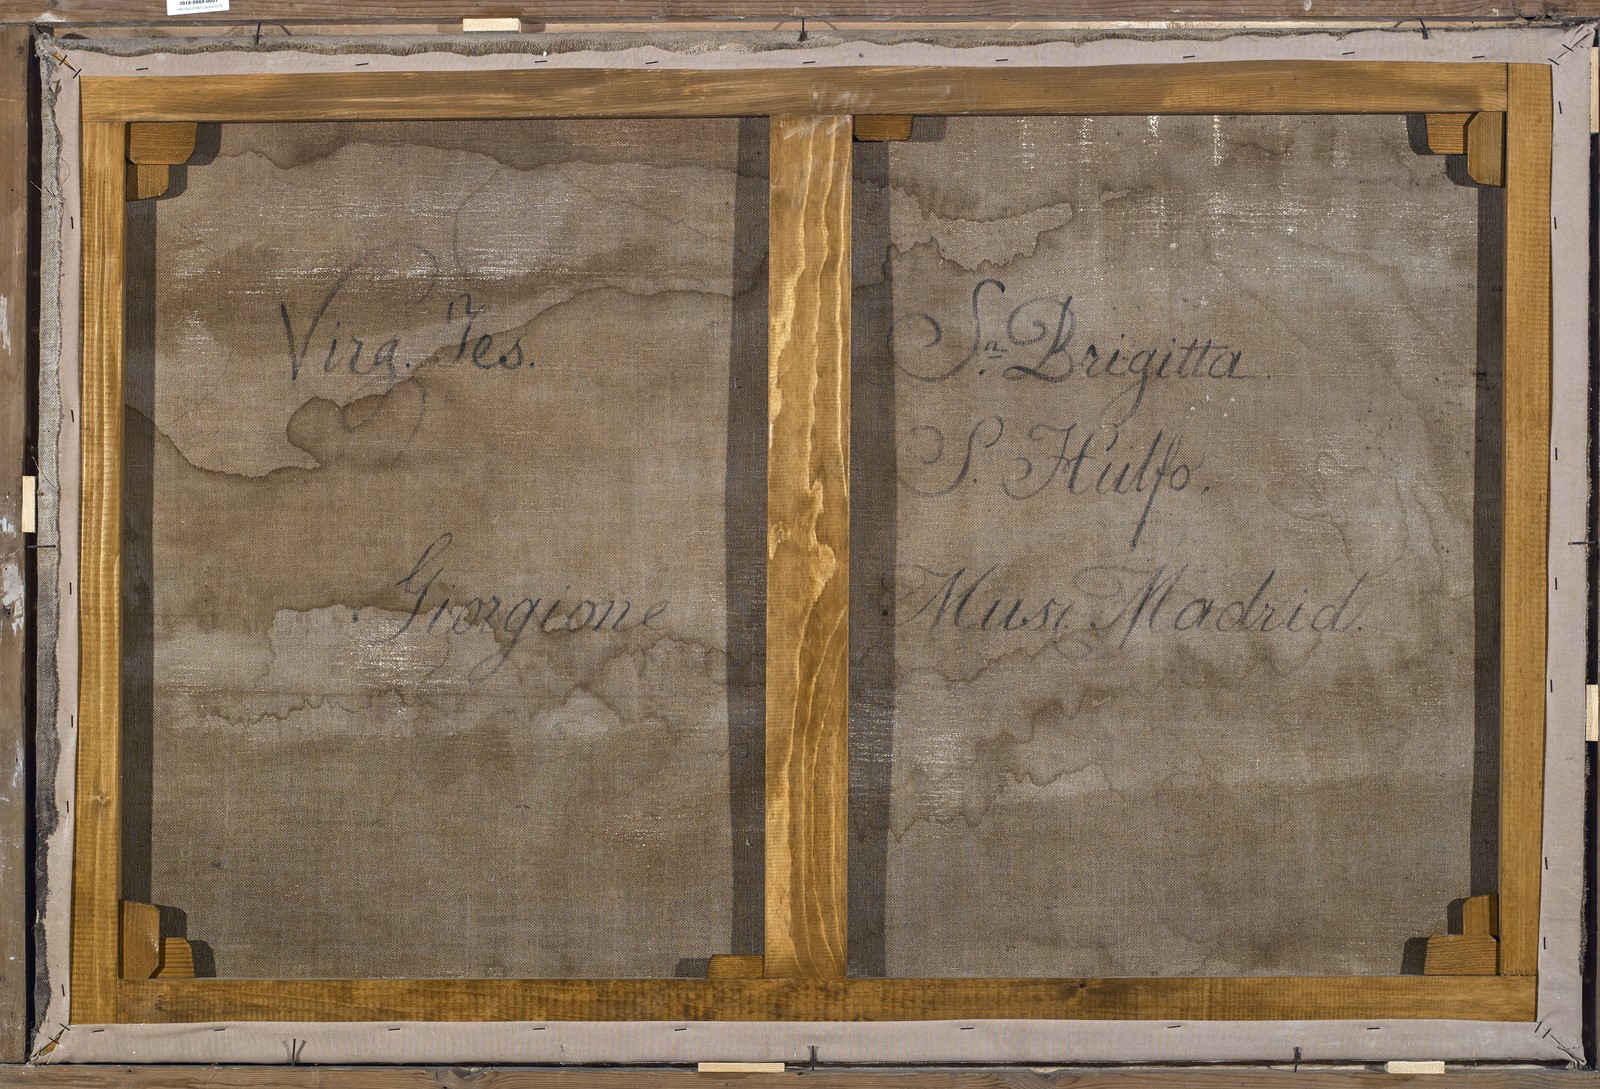 2018-0869-0001
Virg. Jes.
Giorgione
Sn. Brigitta.
S. Hulfo.
Mus: Madrid.